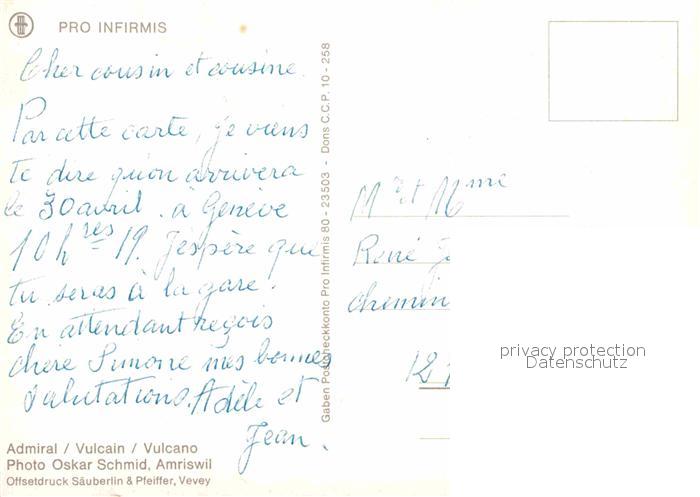 PRO INFIRMIS
Cher cousin et cousine.
Par cette carte, je viens
te dire qu'on arrivera
le 30 avril. à Genève
10 hres 19. J'espère que
tu seras à la gare.
En attendant reçois
chère Simone mes bonnes
salutations. Adèle et
Jean.
Admiral / Vulcain / Vulcano
Photo Oskar Schmid, Amriswil
Offsetdruck Säuberlin & Pfeiffer, Vevey
Gaben Postcheckkonto Pro Infirmis 80 - 23503 - Dons C.C.P. 10 - 258
Mr et Mme
René
chemin
12
privacy protection
Datenschutz